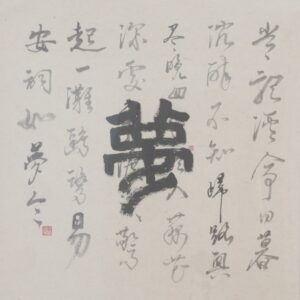 常記溪亭日暮
沉醉不知歸路興
尽晚回入藕花
深處驚
起一灘鷗鷺易
安詞如夢令
夢